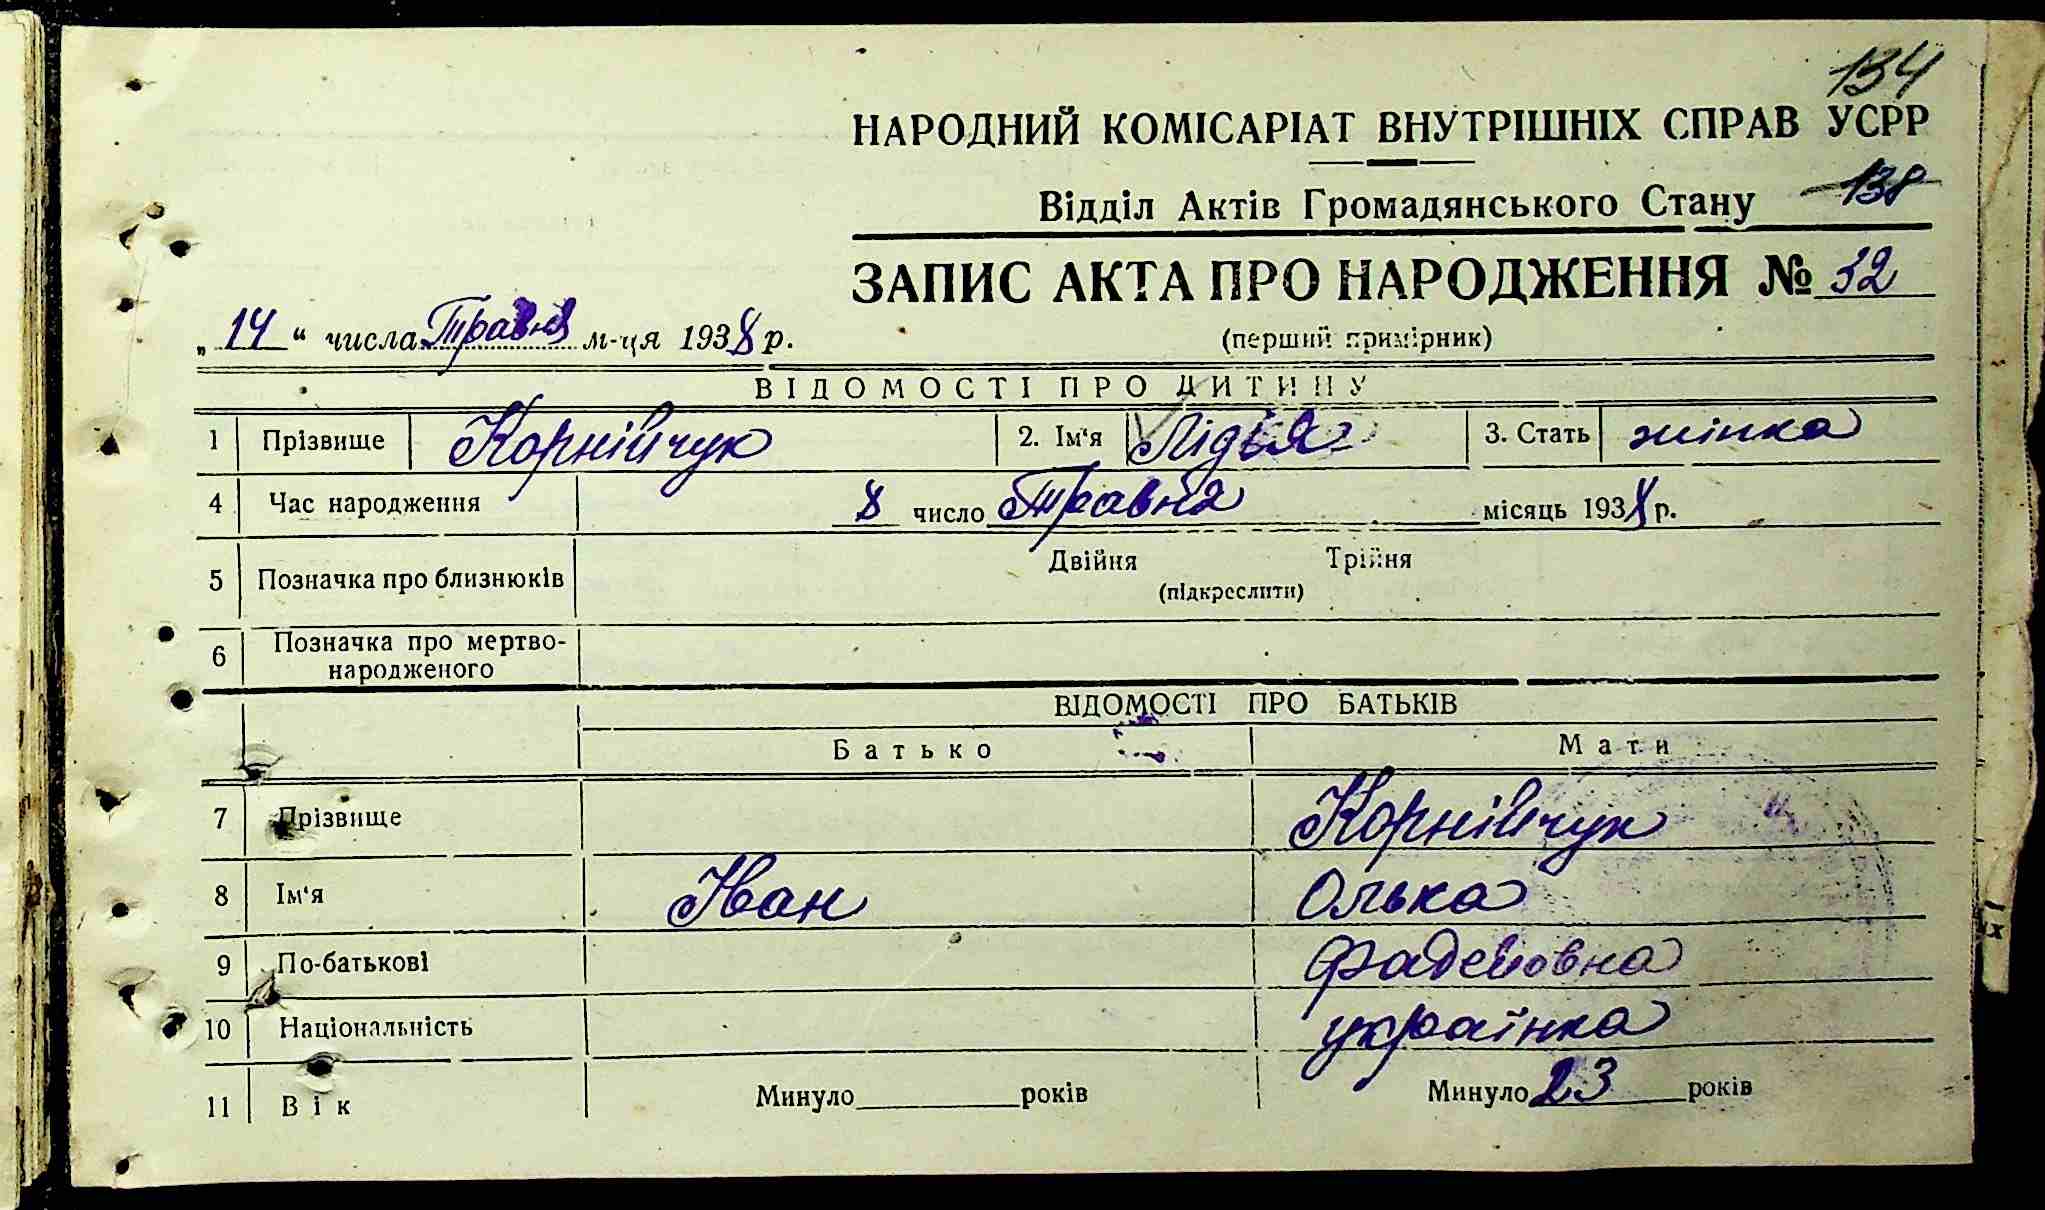 134
НАРОДНИЙ КОМІСАРІАТ ВНУТРІШНІХ СПРАВ УСРР
Відділ Актів Громадянського Стану 138
ЗАПИС АКТА ПРО НАРОДЖЕННЯ № 32
„14“ числа Травня м-ця 1938 р.
(перший примірник)
ВІДОМОСТІ ПРО ДИТИНУ
1 Прізвище Корнійчук 2. Ім'я Лідія 3. Стать жінка
4 Час народження 8 число Травня місяць 1938 р.
5 Позначка про близнюків Двійня Трійня
(підкреслити)
6 Позначка про мертво-
народженого
ВІДОМОСТІ ПРО БАТЬКІВ
Батько Мати
7 Прізвище Корнійчук
8 Ім'я Іван Олька
9 По-батькові Фадейовна
10 Національність українка
11 Вік Минуло років Минуло 23 років